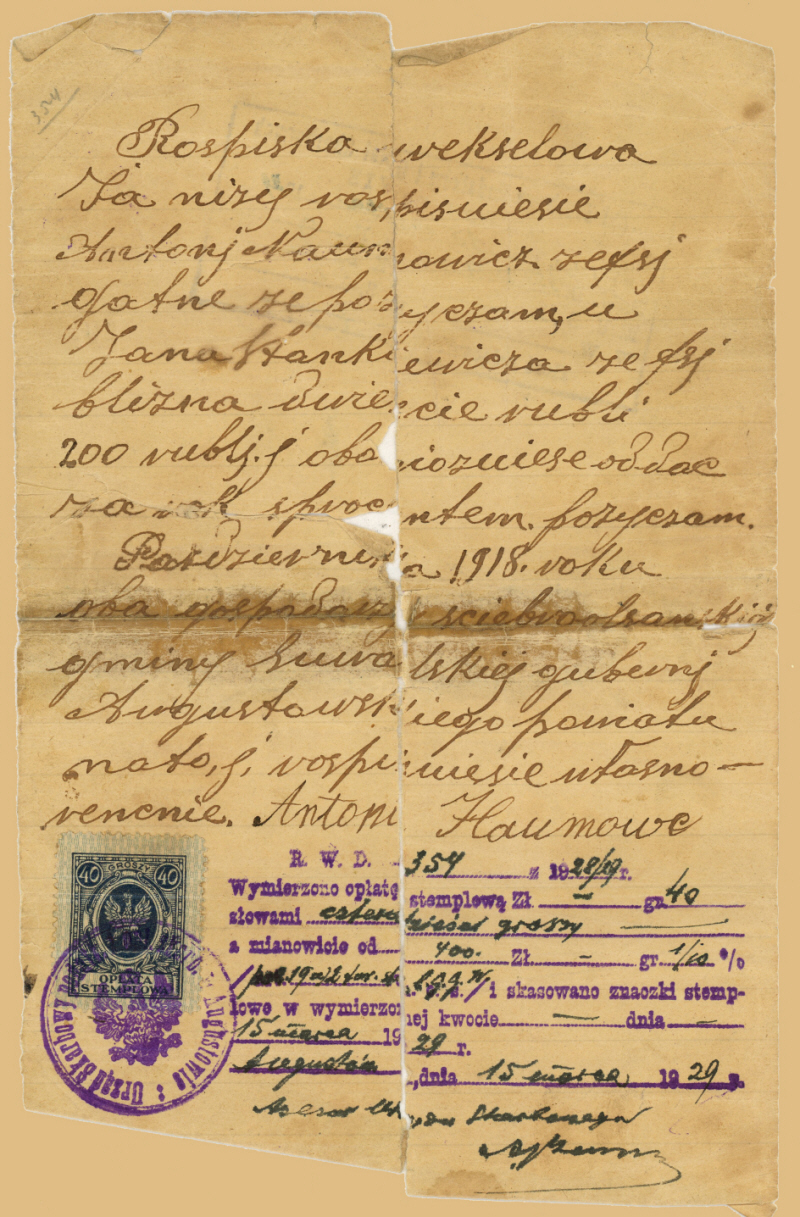 354
Rospiska wekselowa
Ja niżej rospisuiesie
Antonj Naumowicz ze fsj
gatne ze pożyczam, u
Jana Stankiewicza ze fsj
blizna dwieście rubli
200 rublj. j obowiozuiese oddac
za rok sprocentem. pożyczam.
Pazdziernika 1918. roku
oba gospodarzy
gminy Suwalskiej gubernj
Augustowskiego powiatu
nato, j, rospisuiesie własno-
rencnie. Antoni Naumowc
40 GROSZY 40
OPŁATA
STEMPLOWA
Urząd Skarbowy Podatków i Opłat Skarb. w Augustowie
R. W. D. 354 z 1928/29 r.
Wymierzono opłatę stemplową Zł. — gr. 40
słowami czterdzieści groszy
a mianowicie od 400. Zł. — gr 1/10 %
i skasowano znaczki stemp-
lowe w wymierzonej kwocie — dnia —
15 marca 1929 r.
Augustów, dnia 15 marca 1929 r.
Asesor Urzędu Skarbowego